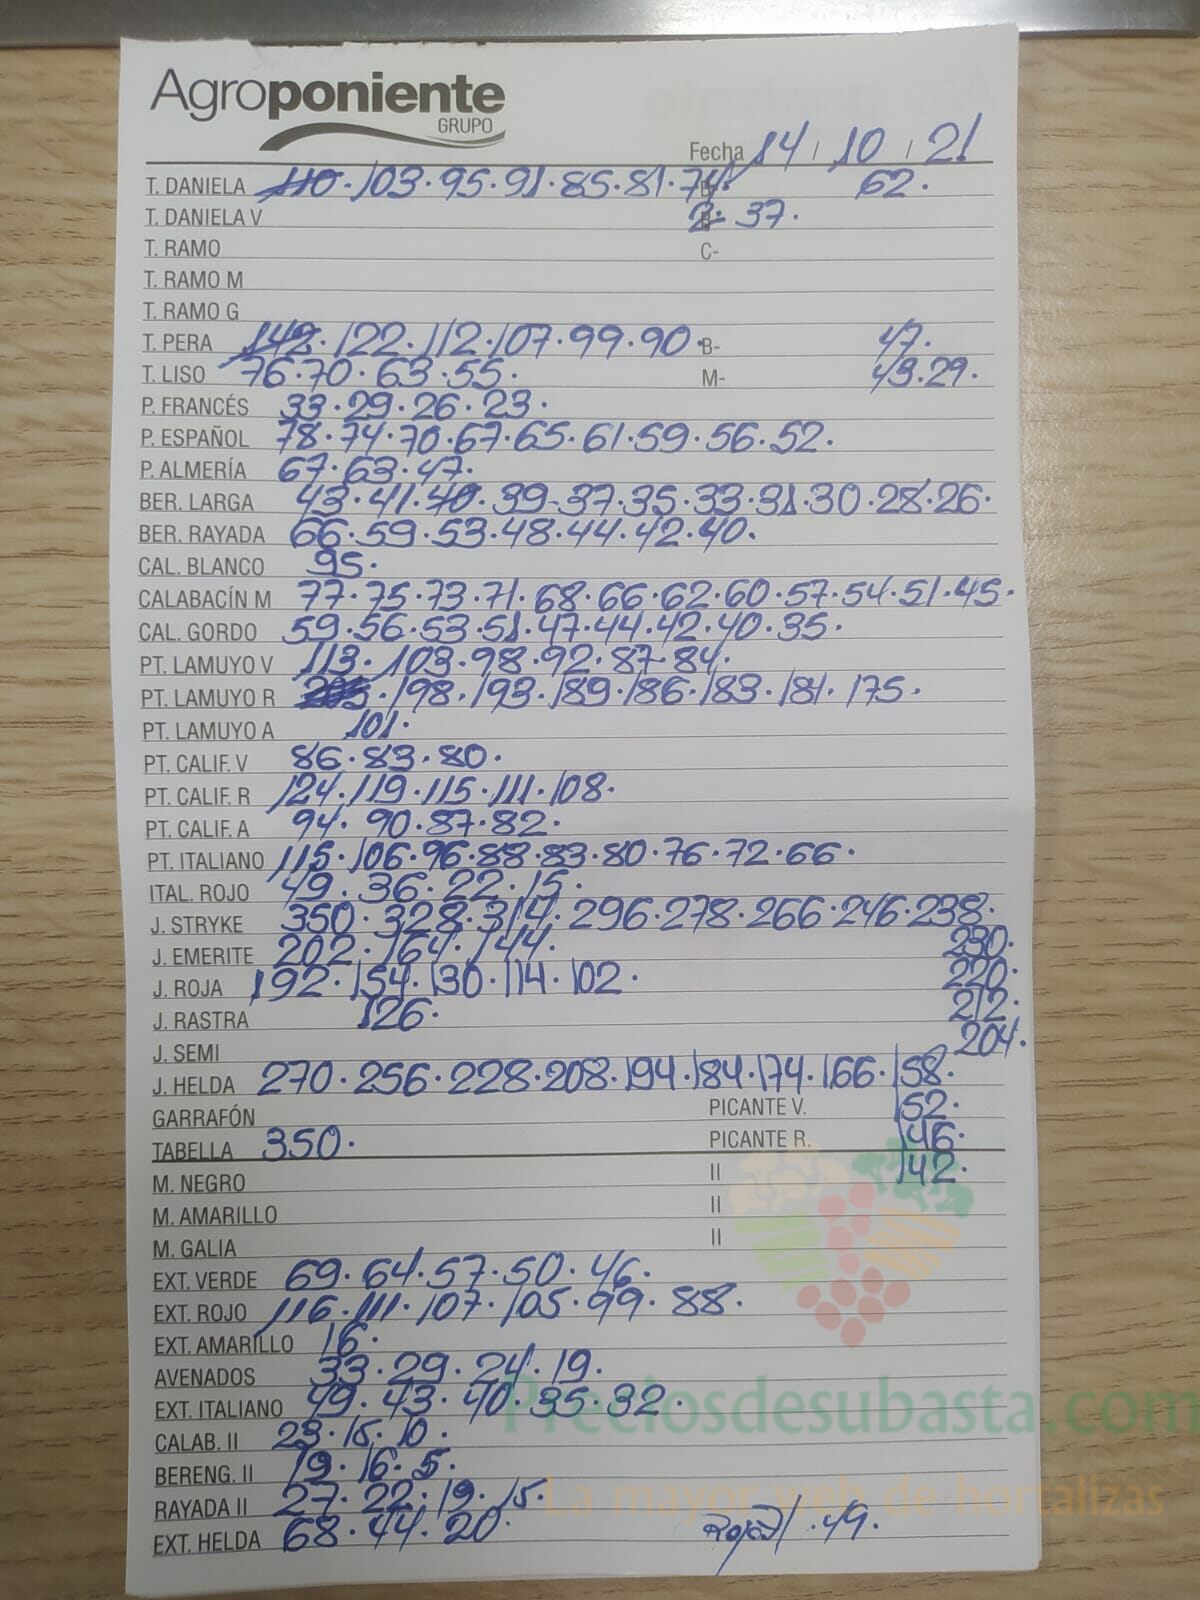 Agroponiente
GRUPO
Fecha 14 / 10 / 21
T. DANIELA 110 · 103 · 95 · 91 · 85 · 81 · 74 · 62 ·
T. DANIELA V 2: 37 ·
T. RAMO C-
T. RAMO M
T. RAMO G
T. PERA 142 · 122 · 112 · 107 · 99 · 90 · B- 47 ·
T. LISO 76 · 70 · 63 · 55 · M- 43 · 29 ·
P. FRANCÉS 33 · 29 · 26 · 23 ·
P. ESPAÑOL 78 · 74 · 70 · 67 · 65 · 61 · 59 · 56 · 52 ·
P. ALMERÍA 67 · 63 · 47 ·
BER. LARGA 43 · 41 · 40 · 39 - 37 · 35 · 33 · 31 · 30 · 28 · 26 ·
BER. RAYADA 66 · 59 · 53 · 48 · 44 · 42 · 40 ·
CAL. BLANCO 95 ·
CALABACÍN M 77 · 75 · 73 · 71 · 68 · 66 · 62 · 60 · 57 · 54 · 51 · 45 ·
CAL. GORDO 59 · 56 · 53 · 51 · 47 · 44 · 42 · 40 · 35 ·
PT. LAMUYO V 113 · 103 · 98 · 92 · 87 · 84 ·
PT. LAMUYO R 205 · 198 · 193 · 189 · 186 · 183 · 181 · 175 ·
PT. LAMUYO A 101 ·
PT. CALIF. V 86 · 83 · 80 ·
PT. CALIF. R 124 · 119 · 115 · 111 · 108 ·
PT. CALIF. A 94 · 90 · 87 · 82 ·
PT. ITALIANO 115 · 106 · 96 · 88 · 83 · 80 · 76 · 72 · 66 ·
ITAL. ROJO 49 · 36 · 22 · 15 ·
J. STRYKE 350 · 328 · 314 · 296 · 278 · 266 · 246 · 238 ·
J. EMERITE 202 · 164 · 144 · 230 ·
J. ROJA 192 · 154 · 130 · 114 · 102 · 220 ·
J. RASTRA 126 · 212 ·
J. SEMI 204 ·
J. HELDA 270 · 256 · 228 · 208 · 194 · 184 · 174 · 166 · 158 ·
GARRAFÓN PICANTE V. 152 ·
TABELLA 350 · PICANTE R. 146 ·
M. NEGRO II 142 ·
M. AMARILLO II
M. GALIA II
EXT. VERDE 69 · 64 · 57 · 50 · 46 ·
EXT. ROJO 116 · 111 · 107 · 105 · 99 · 88 ·
EXT. AMARILLO 16 ·
AVENADOS 33 · 29 · 24 · 19 ·
EXT. ITALIANO 49 · 43 · 40 · 35 · 32 ·
Preciosdesubasta.com
CALAB. II 23 · 15 · 10 ·
BERENG. II 19 · 16 · 5 ·
RAYADA II 27 · 22 · 19 · 15 ·
La mayor web de hortalizas
EXT. HELDA 68 · 44 · 20 · 49 ·